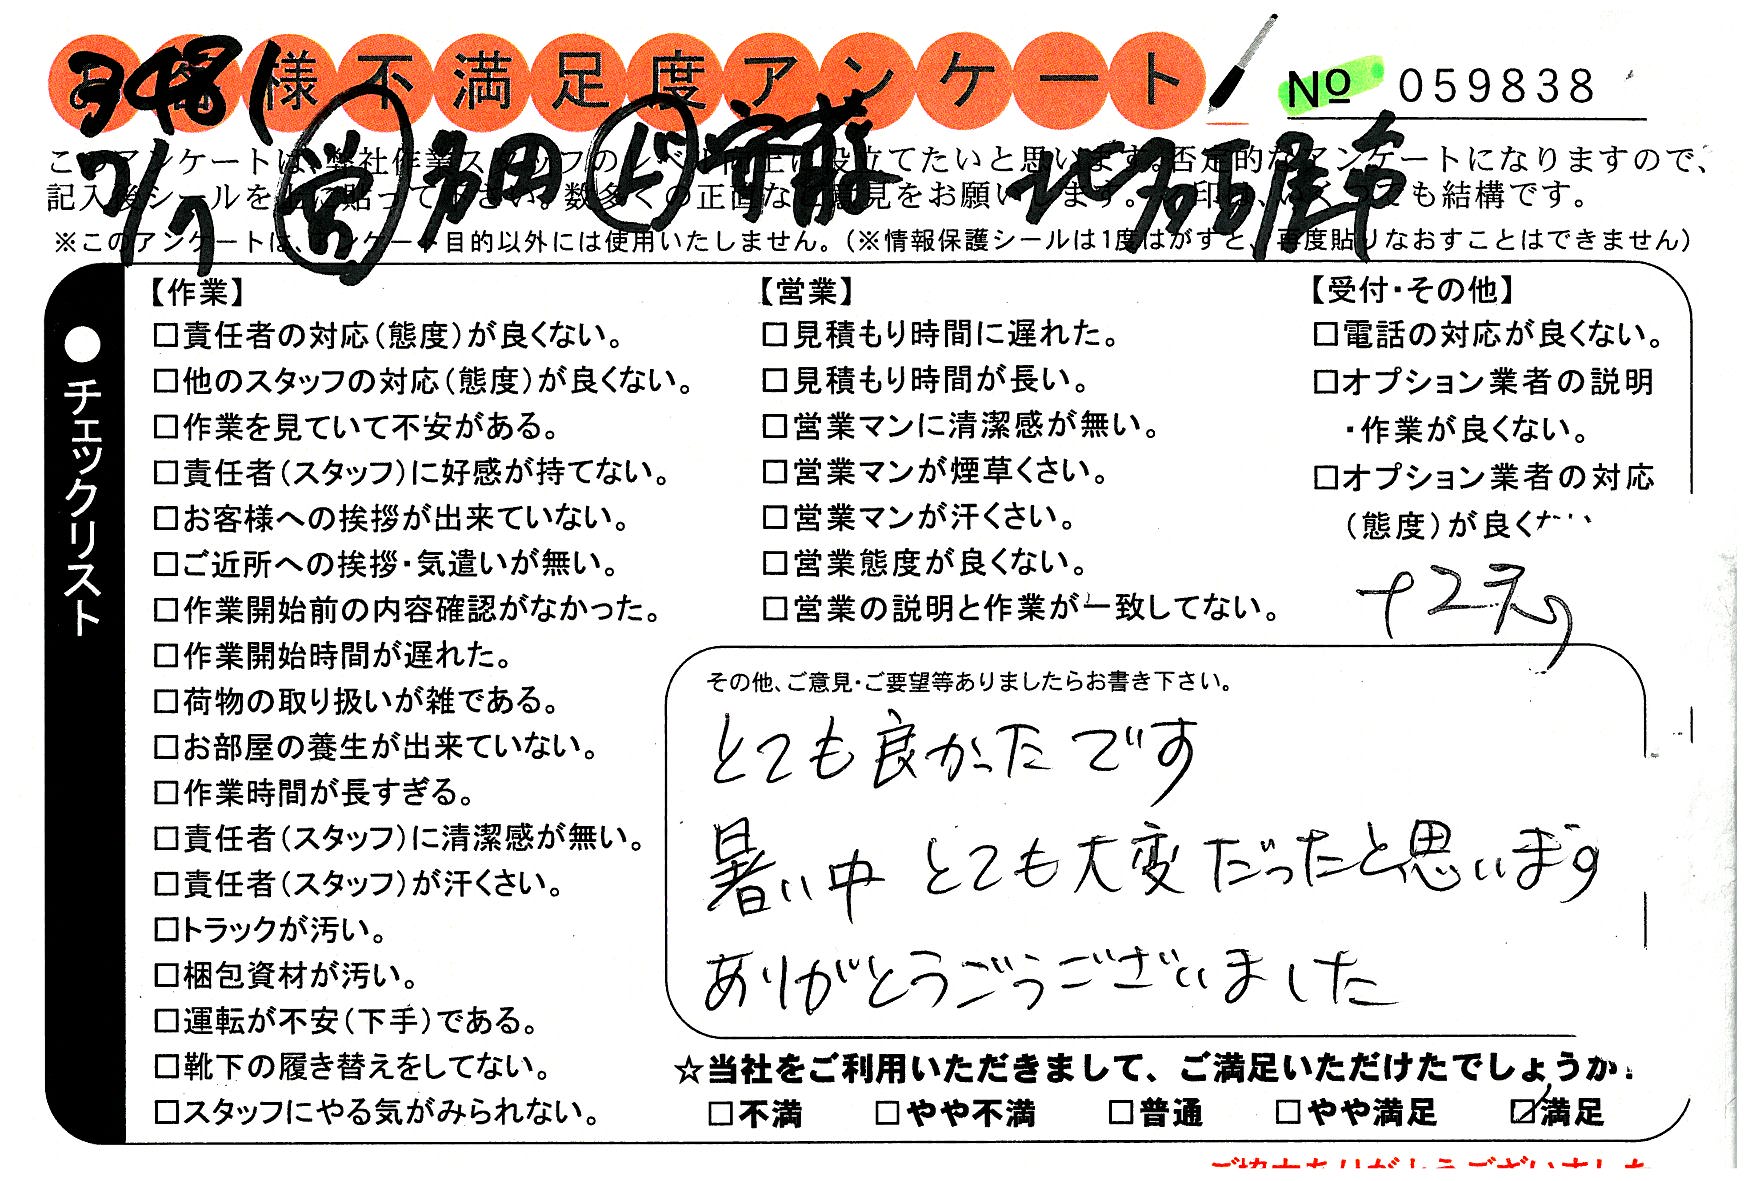 お客様不満足度アンケート
3481
No 059838
7/7 営 多田 ビ 安藤 北名古屋市
このアンケートは、弊社作業スタッフのレベル向上に役立てたいと思います。否定的なアンケートになりますので、
記入後シールを上に貼って下さい。数多くの正直なご意見をお願いします。
も結構です。
※このアンケートは、アンケート目的以外には使用いたしません。(※情報保護シールは1度はがすと、再度貼りなおすことはできません)
●チェックリスト
【作業】
□責任者の対応(態度)が良くない。
□他のスタッフの対応(態度)が良くない。
□作業を見ていて不安がある。
□責任者(スタッフ)に好感が持てない。
□お客様への挨拶が出来ていない。
□ご近所への挨拶・気遣いが無い。
□作業開始前の内容確認がなかった。
□作業開始時間が遅れた。
□荷物の取り扱いが雑である。
□お部屋の養生が出来ていない。
□作業時間が長すぎる。
□責任者(スタッフ)に清潔感が無い。
□責任者(スタッフ)が汗くさい。
□トラックが汚い。
□梱包資材が汚い。
□運転が不安(下手)である。
□靴下の履き替えをしてない。
□スタッフにやる気がみられない。
【営業】
□見積もり時間に遅れた。
□見積もり時間が長い。
□営業マンに清潔感が無い。
□営業マンが煙草くさい。
□営業マンが汗くさい。
□営業態度が良くない。
□営業の説明と作業が一致してない。
【受付・その他】
□電話の対応が良くない。
□オプション業者の説明
・作業が良くない。
□オプション業者の対応
(態度)が良くない
その他、ご意見・ご要望等ありましたらお書き下さい。
とても良かったです
暑い中 とても大変だったと思います
ありがとうごうございました
☆当社をご利用いただきまして、ご満足いただけたでしょうか。
□不満 □やや不満 □普通 □やや満足 ☑満足
ご協力ありがとうございました